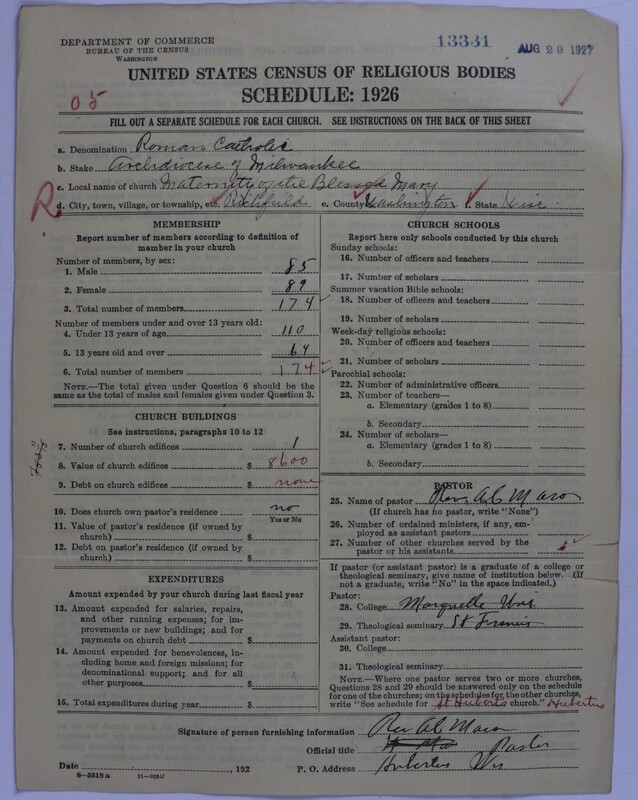 DEPARTMENT OF COMMERCE
BUREAU OF THE CENSUS
WASHINGTON
13331
AUG 29 1927
UNITED STATES CENSUS OF RELIGIOUS BODIES
SCHEDULE: 1926
05
FILL OUT A SEPARATE SCHEDULE FOR EACH CHURCH. SEE INSTRUCTIONS ON THE BACK OF THIS SHEET
a. Denomination Roman Catholic
b. Stake Archdiocese of Milwaukee
c. Local name of church Maternity of the Blessed Mary
R
d. City, town, village, or township, etc. Richfield e. County Washington f. State Wisc
MEMBERSHIP
Report number of members according to definition of
member in your church
Number of members, by sex:
1. Male 85
2. Female 89
3. Total number of members 174
Number of members under and over 13 years old:
4. Under 13 years of age 110
5. 13 years old and over 64
6. Total number of members 174
NOTE.—The total given under Question 6 should be
same as the total of males and females given under Question 3.
CHURCH BUILDINGS
See instructions, paragraphs 10 to 12
7. Number of church edifices 1
8. Value of church edifices $ 8600
9. Debt on church edifices $ none
10. Does church own pastor's residence no
Yes or No
11. Value of pastor's residence (if owned by
church) $
12. Debt on pastor's residence (if owned by
church) $
EXPENDITURES
Amount expended by your church during last fiscal year
13. Amount expended for salaries, repairs,
and other running expenses; for im-
provements or new buildings; and for
payments on church debt $
14. Amount expended for benevolences, in-
cluding home and foreign missions; for
denominational support; and for all
other purposes $
15. Total expenditures during year $
CHURCH SCHOOLS
Report here only schools conducted by this church
Sunday schools:
16. Number of officers and teachers
17. Number of scholars
Summer vacation Bible schools:
18. Number of officers and teachers
19. Number of scholars
Week-day religious schools:
20. Number of officers and teachers
21. Number of scholars
Parochial schools:
22. Number of administrative officers
23. Number of teachers—
a. Elementary (grades 1 to 8)
b. Secondary
24. Number of scholars—
a. Elementary (grades 1 to 8)
b. Secondary
PASTOR
25. Name of pastor Rev
(If church has no pastor, write "None")
26. Number of ordained ministers, if any, em-
ployed as assistant pastors
27. Number of other churches served by the
pastor or his assistants
If pastor (or assistant pastor) is a graduate of a college or
theological seminary, give name of institution below. (If
not a graduate, write "No" in the space indicated.)
Pastor:
28. College Marquette Uni
29. Theological seminary St Francis
Assistant pastor:
30. College
31. Theological seminary
NOTE.—Where one pastor serves two or more churches,
Questions 28 and 29 should be answered only on the schedule
for one of the churches; on the schedules for the other churches,
write "See schedule for St Huberts church." Hubertus
Signature of person furnishing information Rev
Official title Pastor
Date , 192 P. O. Address Hubertus Wis
8—5518a 11—9264f